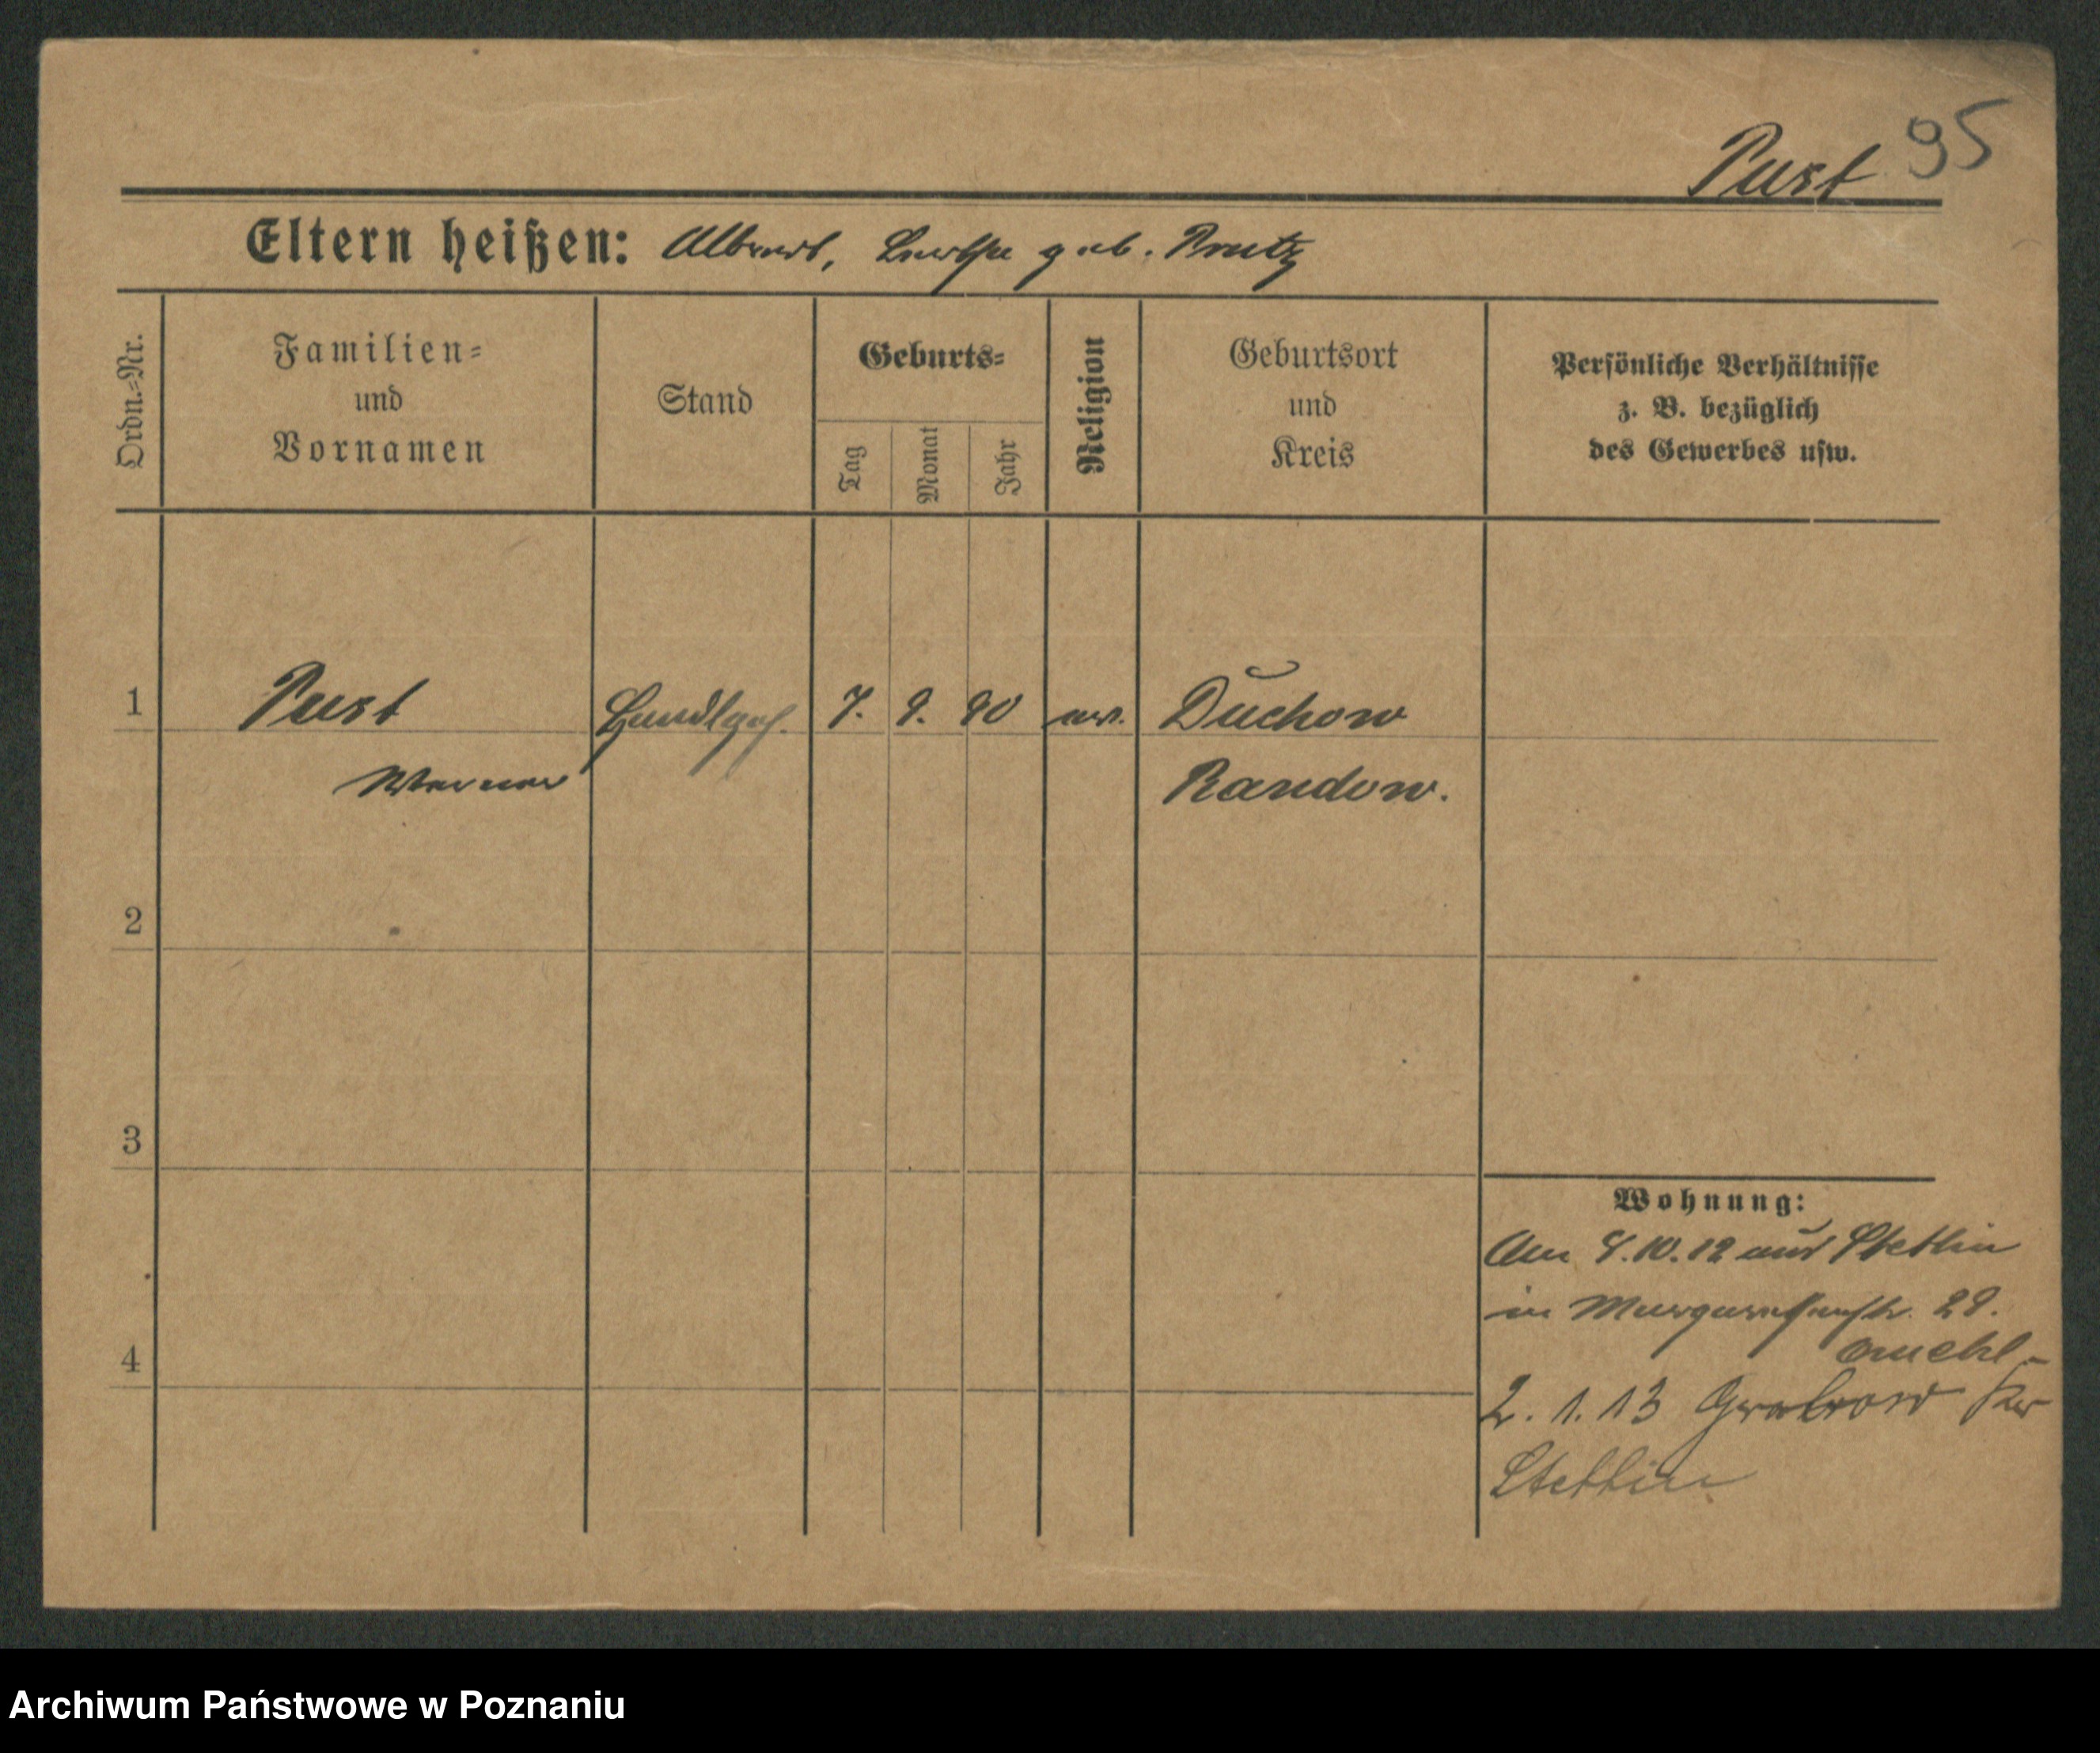 95
Pust
Eltern heißen: Albert, geb. Prutz
Ordn.=Nr.
Familien=
und
Vornamen
Stand
Geburts=
Tag
Monat
Jahr
Religion
Geburtsort
und
Kreis
Persönliche Verhältnisse
z. B. bezüglich
des Gewerbes usw.
1 Pust Handlgeh. 7. 9. 90 ev. Duchow
Werner Randow.
2
3
4
Wohnung:
Am 8.10.12 aus Stettin
in Margarethenstr. 28.
2. 1. 13 Grabow
Stettin
Archiwum Państwowe w Poznaniu